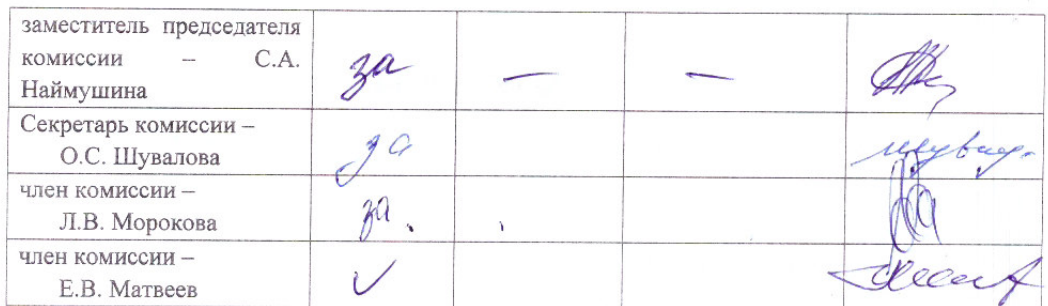 заместитель председателя
комиссии – С.А. за — —
Наймушина
Секретарь комиссии –
О.С. Шувалова за
член комиссии –
Л.В. Морокова за.
член комиссии –
Е.В. Матвеев